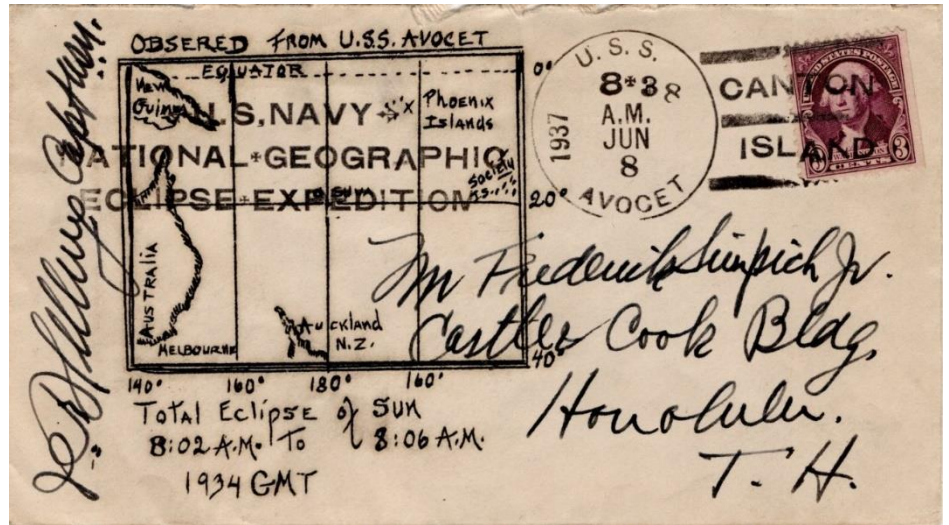 OBSERED FROM U.S.S. AVOCET
EQUATOR
0°
New Guinea
Phoenix Islands
U.S. NAVY
NATIONAL GEOGRAPHIC
ECLIPSE EXPEDITION
O SUM
SOCIETY IS.
20°
AUSTRALIA
MELBOURNE
Auckland
N.Z.
40°
140° 160° 180° 160°
Total Eclipse of Sun
8:02 A.M. To 8:06 A.M.
1934 GMT
U.S.S.
8 38
A.M.
JUN
8
1937
AVOCET
CANTON
ISLAND
UNITED STATES POSTAGE
3 3
CENTS
Mr Frederick Simpich Jr.
Castle & Cook Bldg,
Honolulu.
T.H.